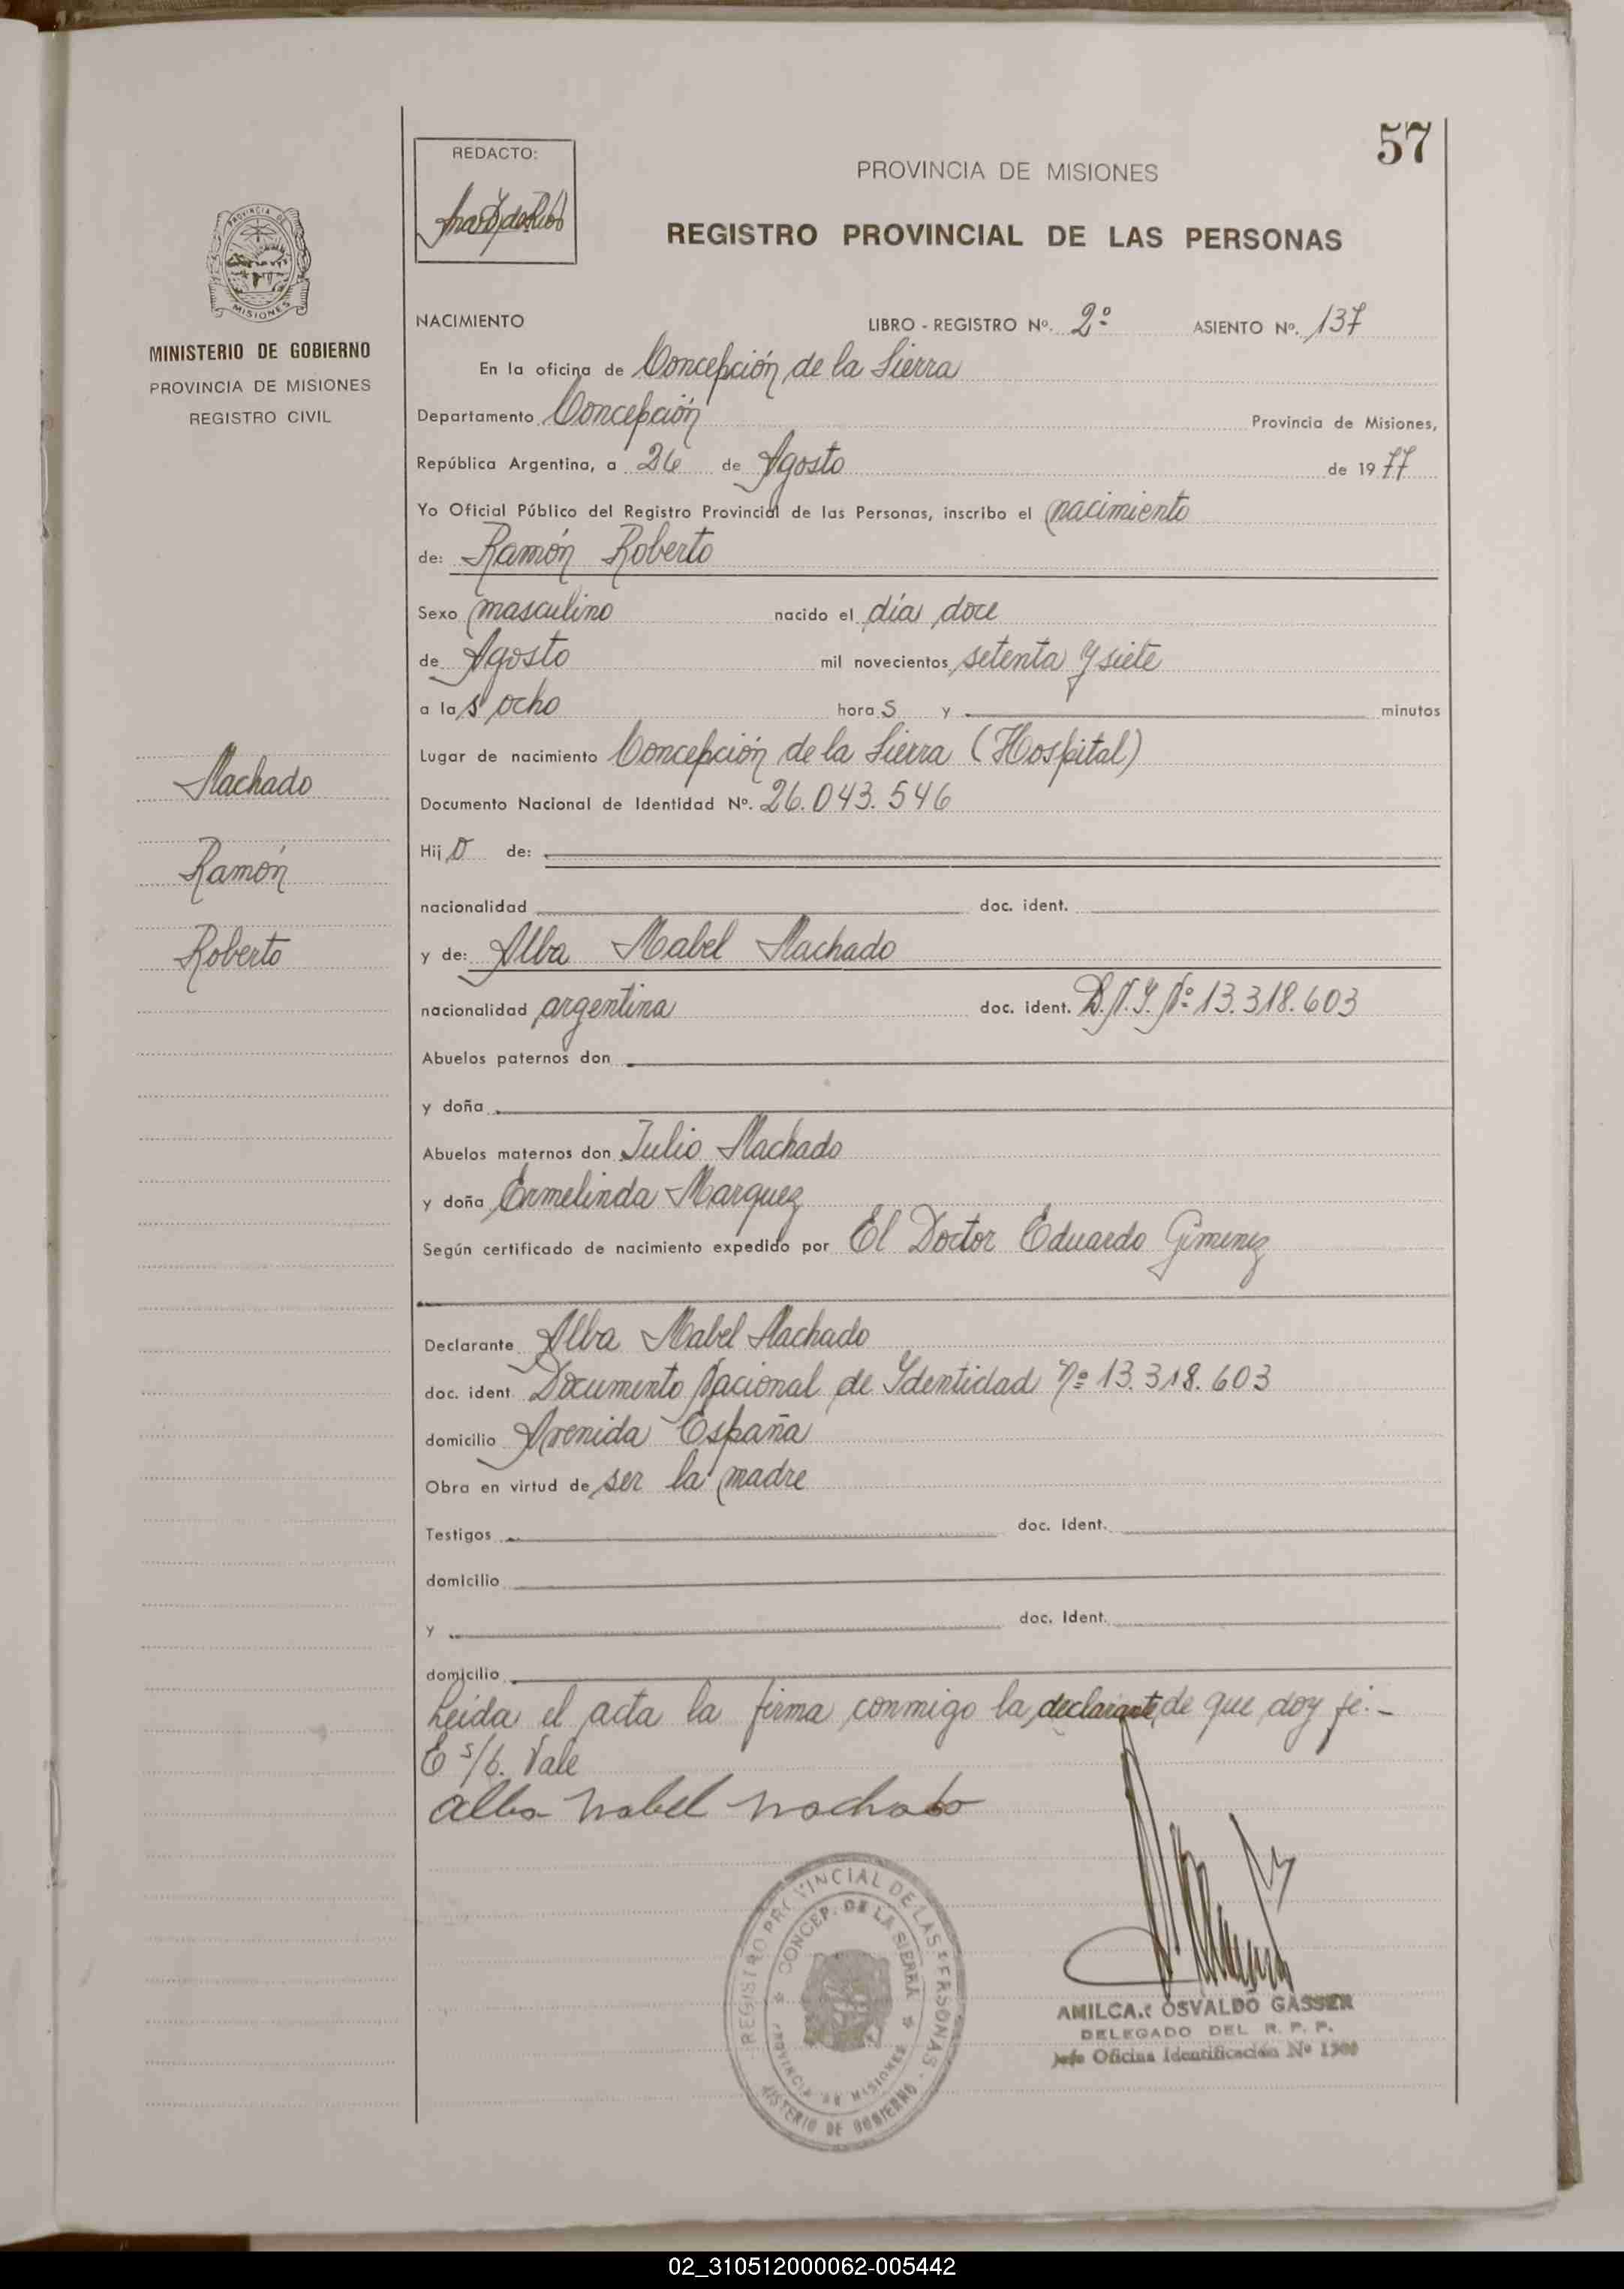 57
REDACTO:
PROVINCIA DE MISIONES
REGISTRO PROVINCIAL DE LAS PERSONAS
PROVINCIA DE
MISIONES
MINISTERIO DE GOBIERNO
PROVINCIA DE MISIONES
REGISTRO CIVIL
Machado
Ramón
Roberto
NACIMIENTO LIBRO - REGISTRO Nº. 2º ASIENTO Nº. 137
En la oficina de Concepción de la Sierra
Departamento Concepción Provincia de Misiones,
República Argentina, a 26 de Agosto de 1977
Yo Oficial Público del Registro Provincial de las Personas, inscribo el nacimiento
de: Ramón Roberto
Sexo masculino nacido el día doce
de Agosto mil novecientos setenta y siete
a las ocho horas y minutos
Lugar de nacimiento Concepción de la Sierra (Hospital)
Documento Nacional de Identidad Nº. 26.043.546
Hijo de:
nacionalidad doc. ident.
y de: Alba Mabel Machado
nacionalidad argentina doc. ident. D.N.I. Nº 13.318.603
Abuelos paternos don
y doña
Abuelos maternos don Julio Machado
y doña Ermelinda Marquez
Según certificado de nacimiento expedido por El Doctor Eduardo Gimenez
Declarante Alba Mabel Machado
doc. ident. Documento Nacional de Identidad Nº 13.318.603
domicilio Avenida España
Obra en virtud de ser la madre
Testigos doc. Ident.
domicilio
y doc. Ident.
domicilio
Leída el acta la firma conmigo la declarante de que doy fé.-
E s/b. Vale
Alba Mabel Machado
REGISTRO PROVINCIAL DE LAS PERSONAS
CONCEP. DE LA SIERRA
PROVINCIA DE MISIONES
MINISTERIO DE GOBIERNO
AMILCAR OSVALDO GASSER
DELEGADO DEL R. P. P.
Jefe Oficina Identificación Nº
02_310512000062-005442